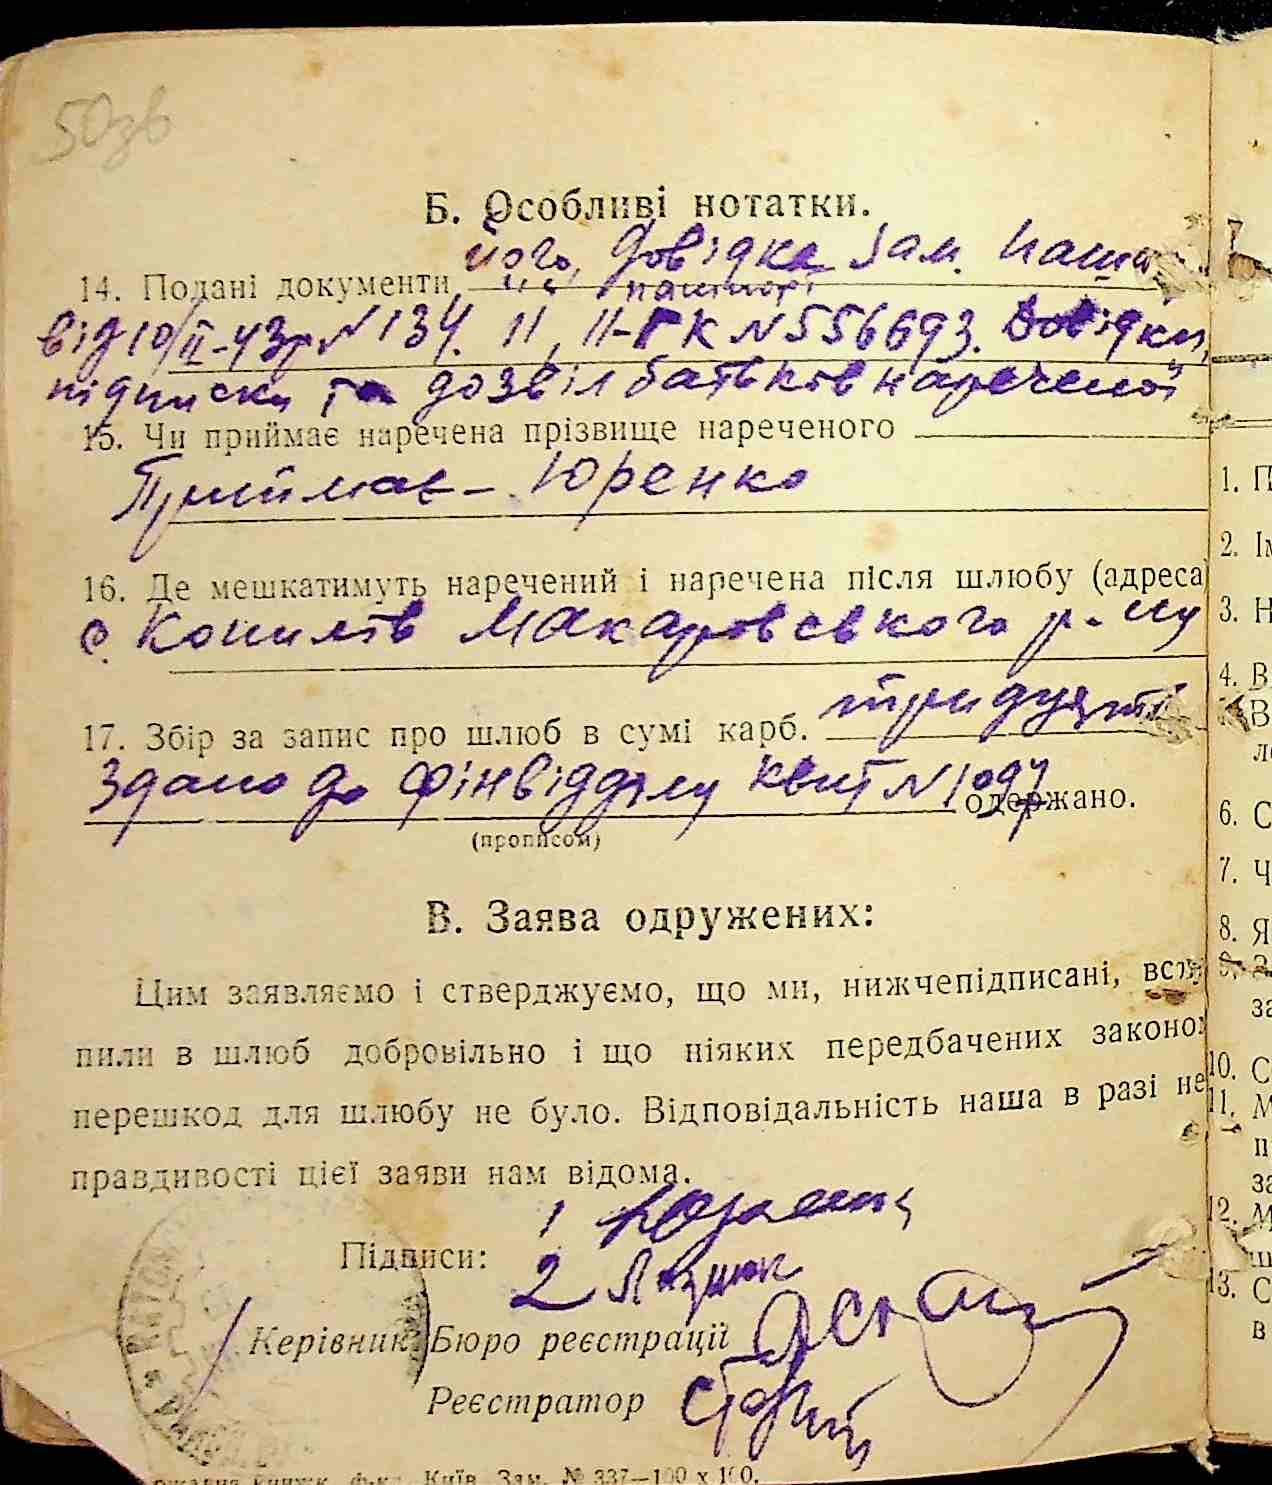 50зв
Б. Особливі нотатки.
14. Подані документи його, Довідка зам. паш
її паспорт
від 10/II-43р № 134. II, II-ГК № 556693. Довідки,
підписки та дозвіл батьків нареченої
15. Чи приймає наречена прізвище нареченого
Приймає – Юренко
16. Де мешкатимуть наречений і наречена після шлюбу (адреса)
с. Копилів Макаровського р-ну
17. Збір за запис про шлюб в сумі карб. тридцять
Здано до фінвідділу квит № одержано.
(прописом)
В. Заява одружених:
Цим заявляємо і стверджуємо, що ми, нижчепідписані, всту
пили в шлюб добровільно і що ніяких передбачених законом
перешкод для шлюбу не було. Відповідальність наша в разі не
правдивості цієї заяви нам відома.
Підписи: 1
2
Керівник Бюро реєстрації
Реєстратор
Київ. Зам. № 337—100 х 100.
1. П
2. Ім
3. Н
4. В
В
л
6. С
7. Ч
8. Я
9. З
за
10. С
11. М
п
за
12. М
ш
13. С
в